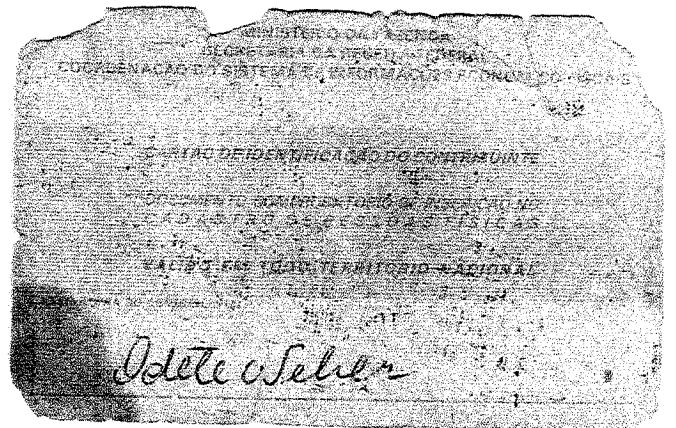 MINISTÉRIO DA FAZENDA
SECRETARIA DA RECEITA FEDERAL
COORDENAÇÃO DO SISTEMA DE INFORMAÇÕES ECONÔMICO-FISCAIS
CARTÃO DE IDENTIFICAÇÃO DO CONTRIBUINTE
DOCUMENTO COMPROBATÓRIO DE INSCRIÇÃO NO
CADASTRO DE PESSOAS FÍSICAS
VÁLIDO EM TODO TERRITÓRIO NACIONAL
Odete